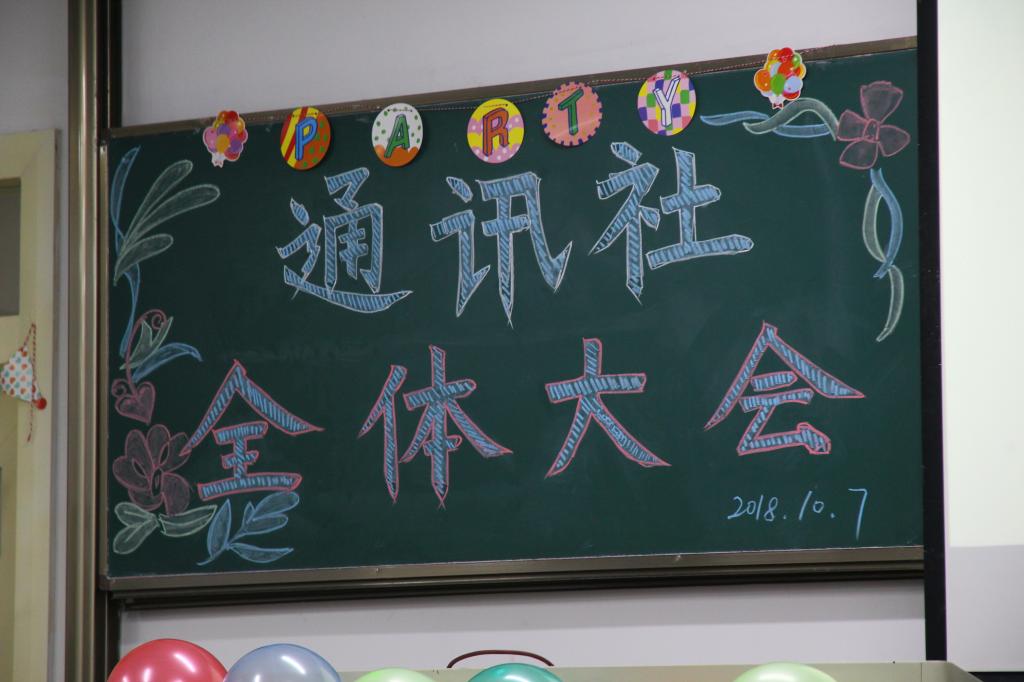 PARTY
通讯社
全体大会
2018.10.7